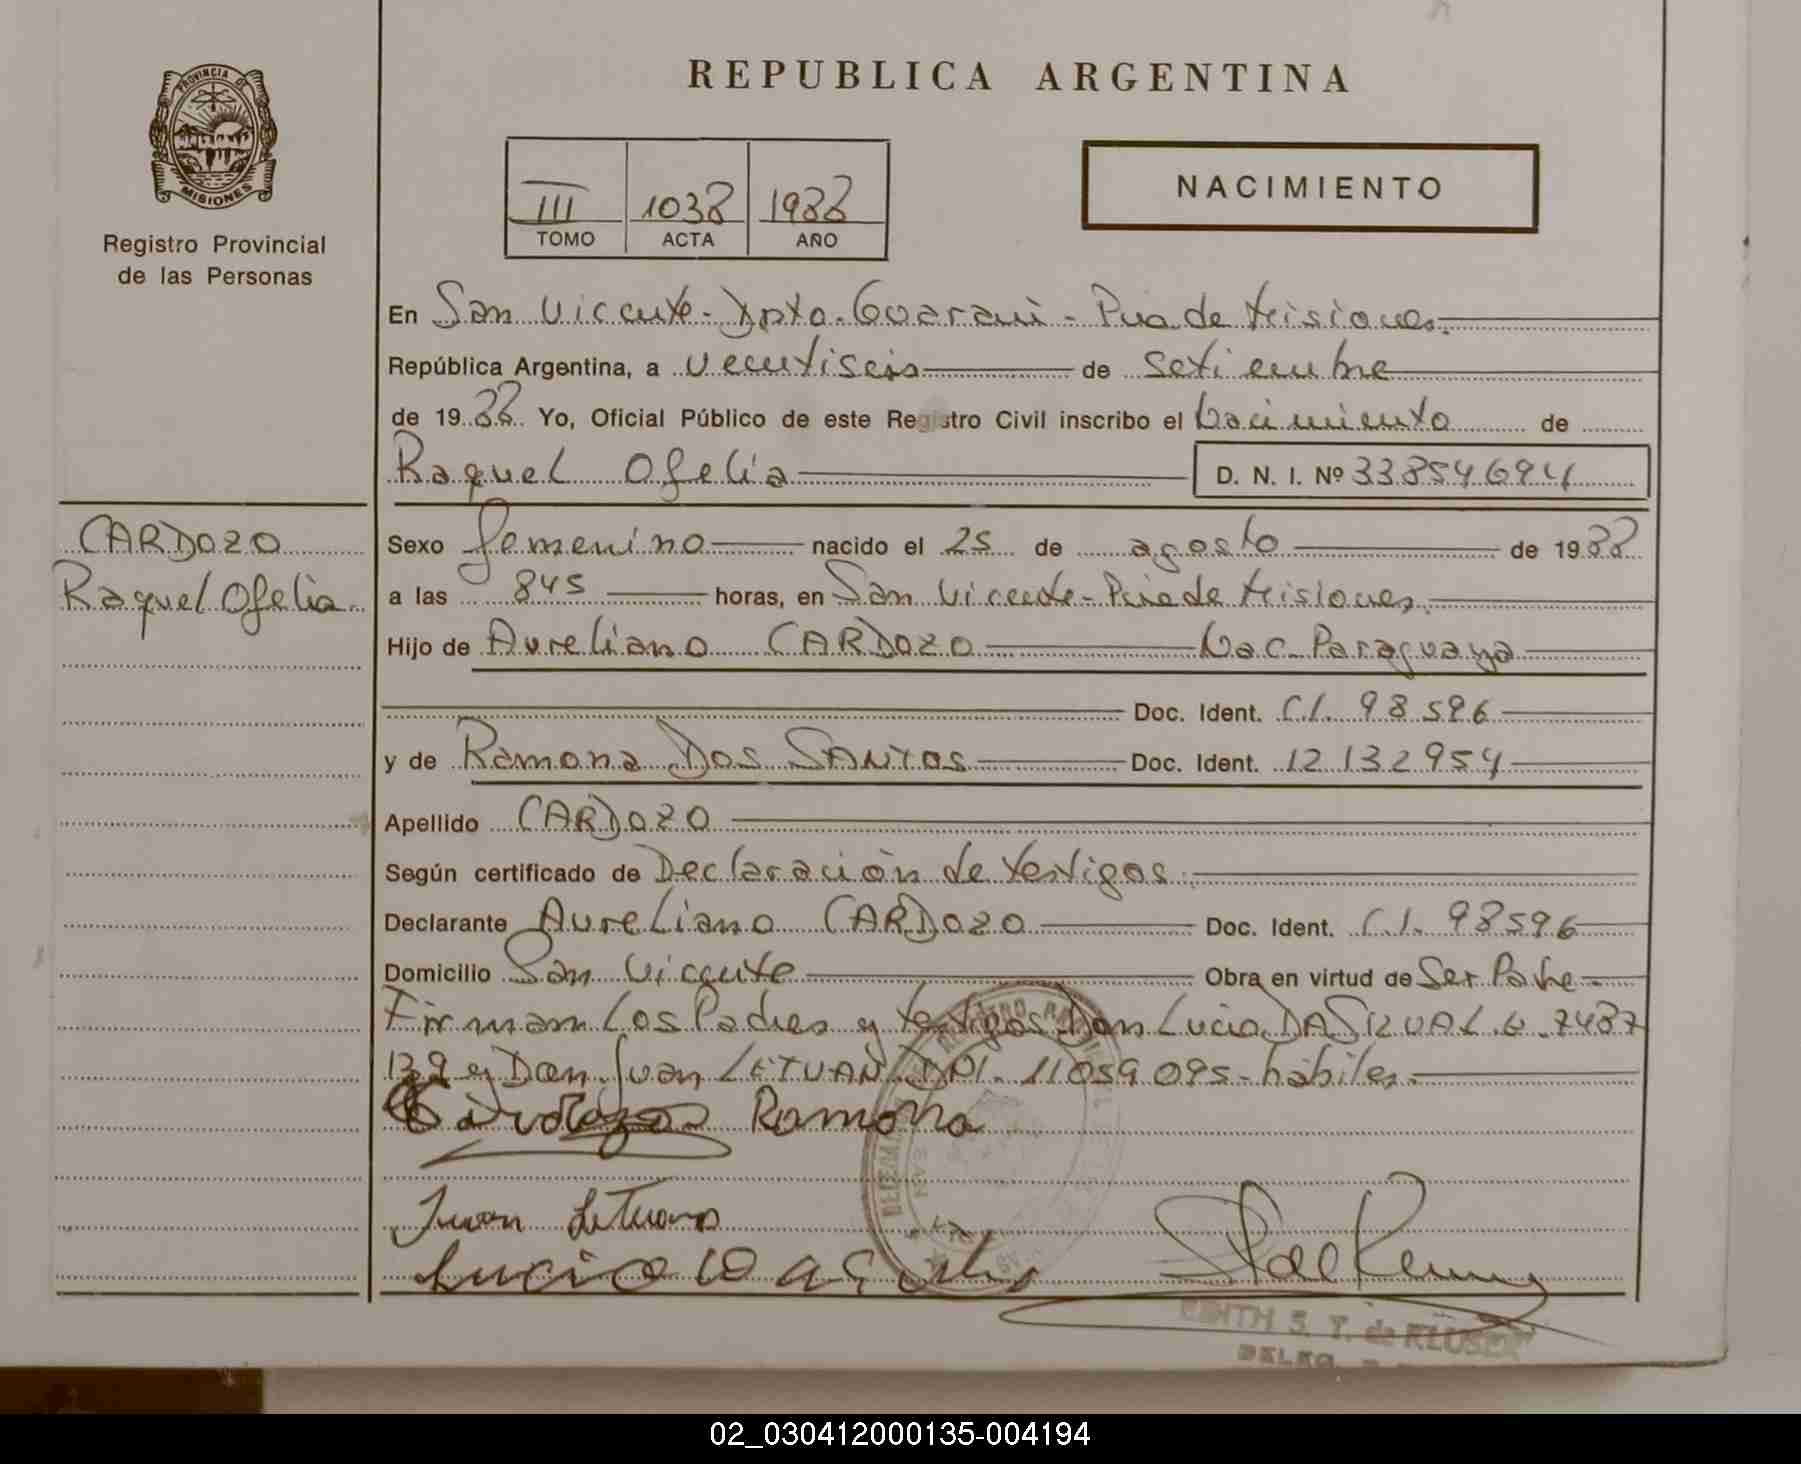 REPUBLICA ARGENTINA
PROVINCIA DE
MISIONES
Registro Provincial
de las Personas
III 1038 1988
TOMO ACTA AÑO
NACIMIENTO
En San Vicente - Dpto. Guaraní - Pcia de Misiones.
República Argentina, a veintiseis de setiembre
de 1988 Yo, Oficial Público de este Registro Civil inscribo el Nacimiento de
Raquel Ofelia D. N. I. Nº 33854694
CARDOZO
Raquel Ofelia
Sexo femenino nacido el 25 de agosto de 1988
a las 845 horas, en San Vicente - Pcia de Misiones.
Hijo de Aureliano CARDOZO Nac. Paraguaya
Doc. Ident. C.I. 98596
y de Ramona Dos SANTOS Doc. Ident. 12132954
Apellido CARDOZO
Según certificado de Declaración de testigos.
Declarante Aureliano CARDOZO Doc. Ident. C.I. 98596
Domicilio San Vicente Obra en virtud de Ser Padre -
Firman Los Padres y testigos Don Lucio DA SILVA L.E. 7487
139 y Don Juan LETUAN DNI. 11059095 - hábiles.
Cardozo Ramona
Juan Letuan
Lucio Da Silva
EDITH S. T. de KLUSER
02_030412000135-004194